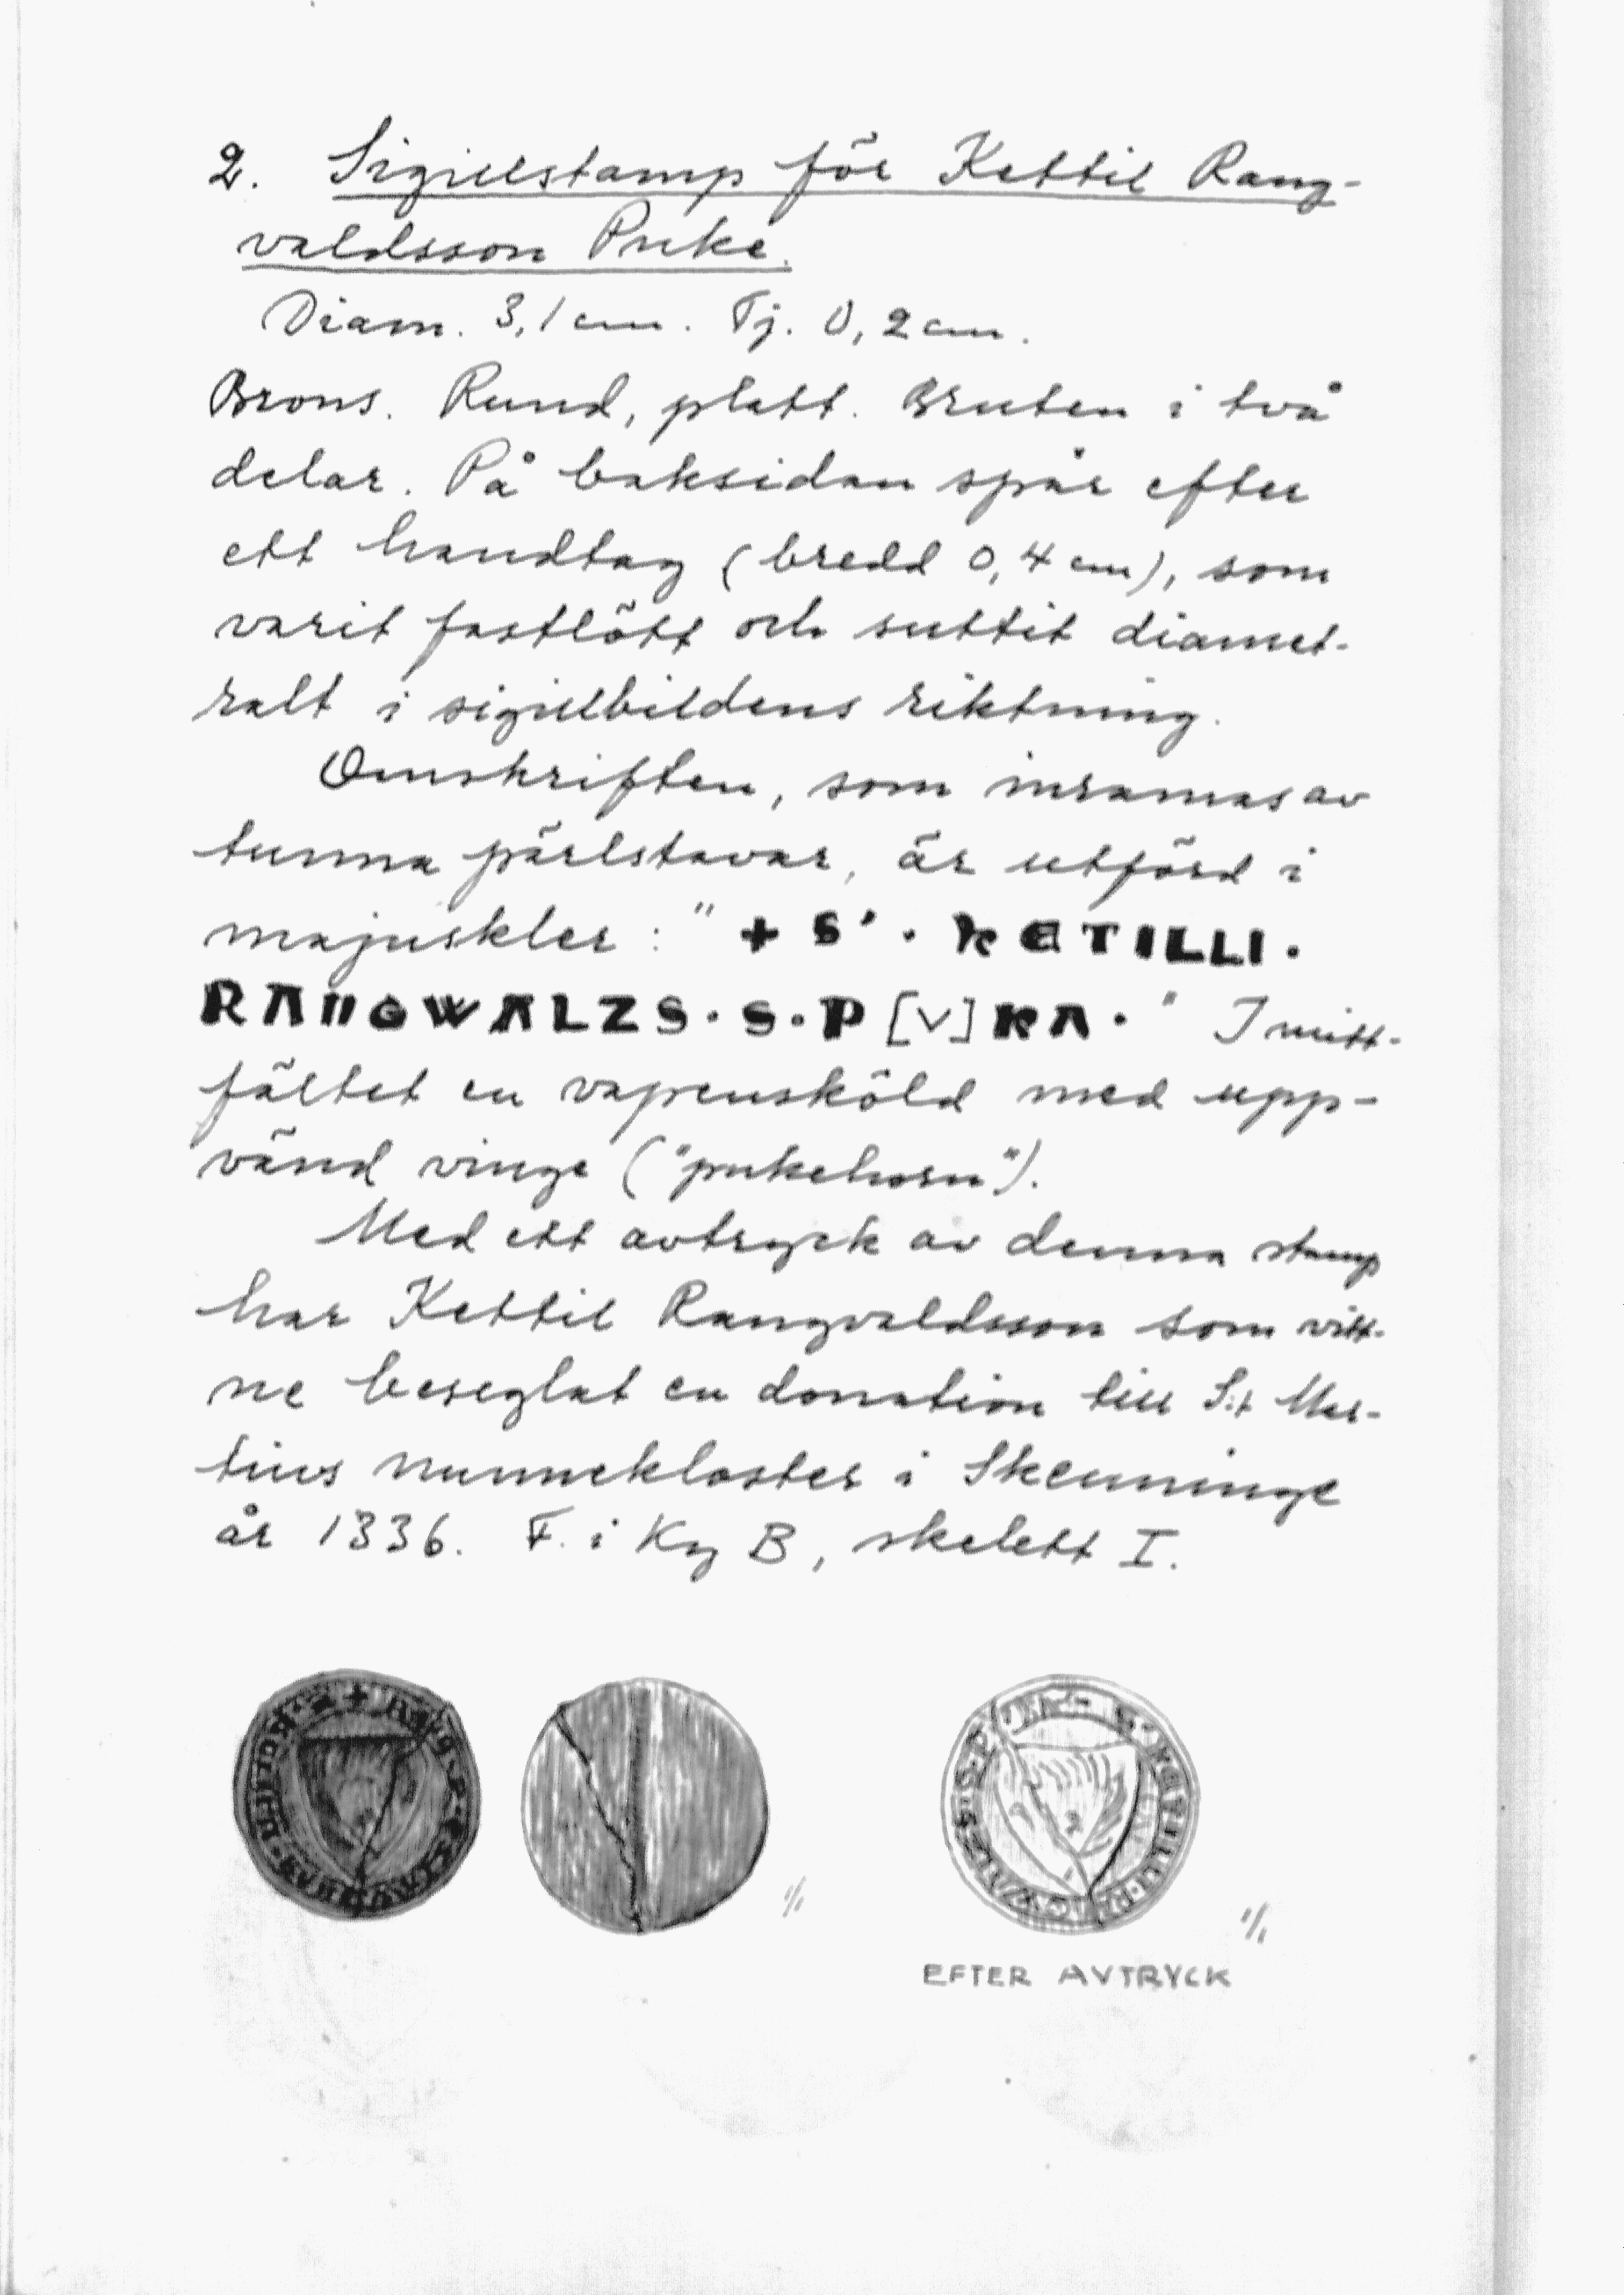 2. Sigillstamp för Kettil Rang-
valdsson Puke.
Diam. 3,1 cm. Tj. 0,2 cm.
Brons. Rund, platt. Bruten i två
delar. På baksidan spår efter
ett handtag (bredd 0,4 cm), som
varit fastlött och suttit diamet-
ralt i sigillbildens riktning.
Omskriften, som inramas av
tunna pärlstavar, är utförd i
majuskler: "+ S' · KETILLI ·
RANGWALZS · S · P[V]KA · " I mitt-
fältet en vapensköld med upp-
vänd vinge ("pukehorn").
Med ett avtryck av denna stamp
har Kettil Rangvaldsson som vitt-
ne beseglat en donation till S:t Mar-
tins nunnekloster i Skenninge
år 1336. F. i Kg B, skelett I.
1/1
1/1
EFTER AVTRYCK